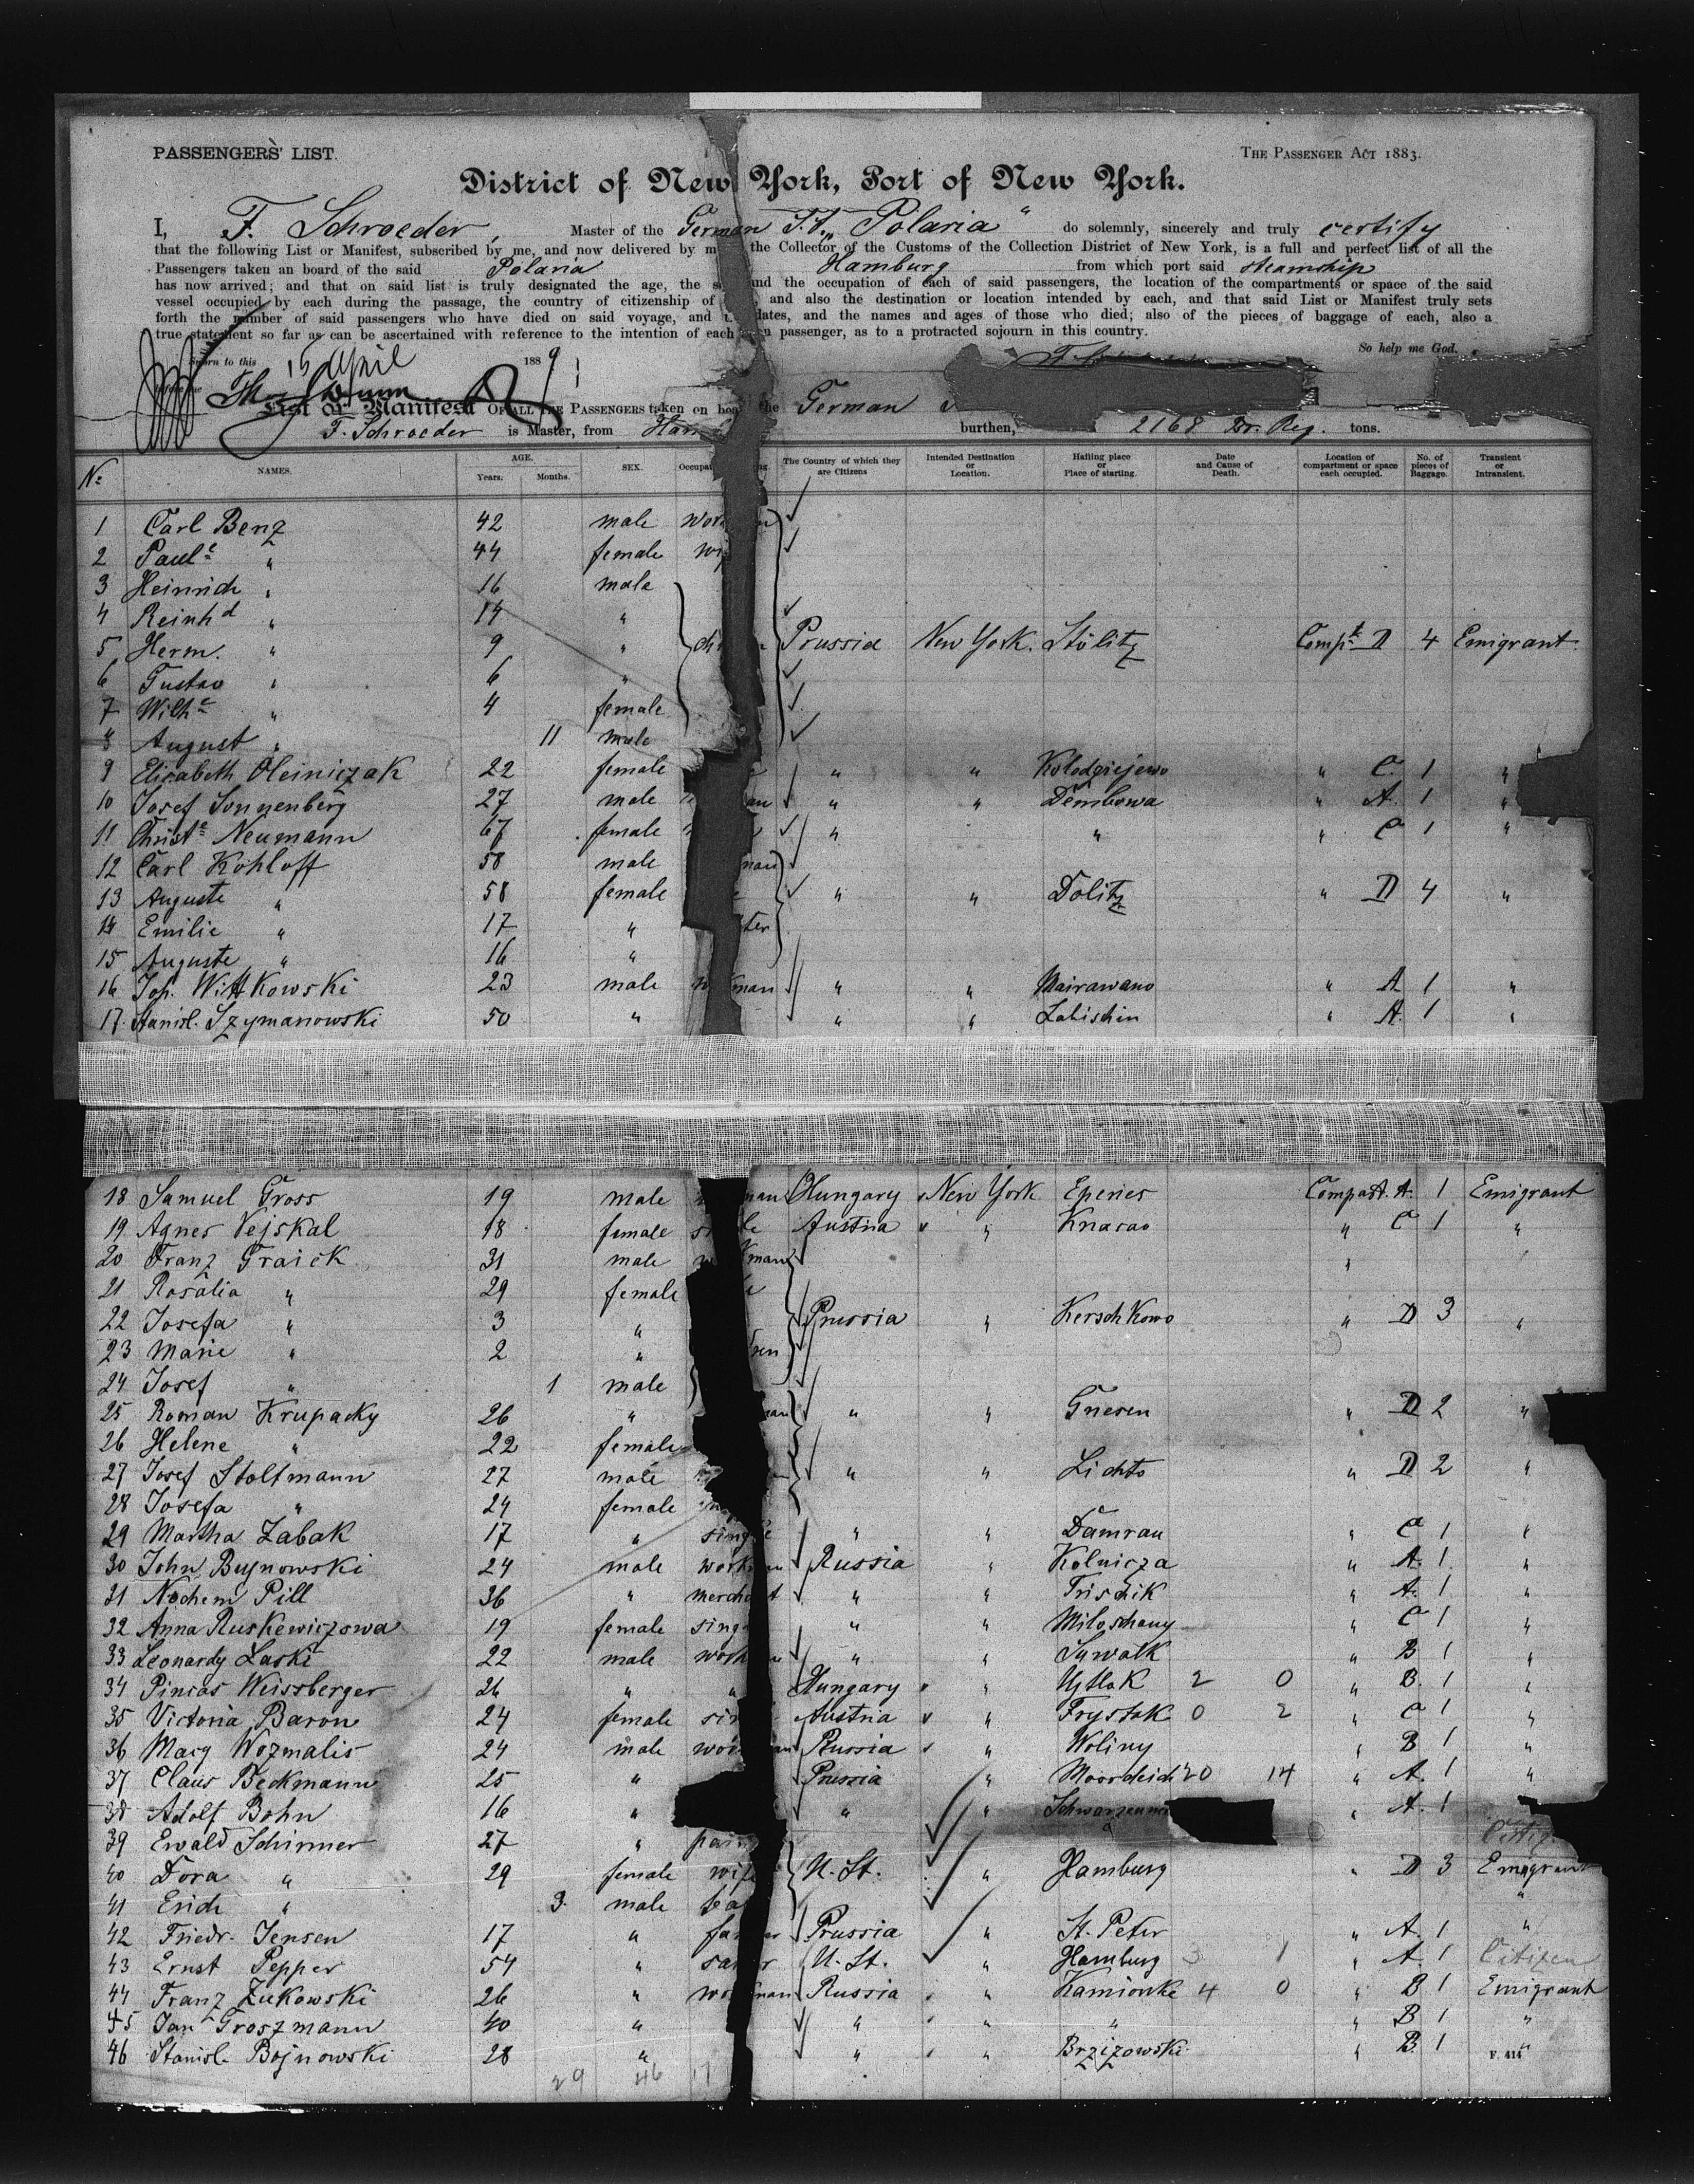 PASSENGERS' LIST.
THE PASSENGER ACT 1883.
District of New York, Port of New York.
I, F. Schroeder, Master of the German S.S. "Polaria" do solemnly, sincerely and truly certify
that the following List or Manifest, subscribed by me, and now delivered by m the Collector of the Customs of the Collection District of New York, is a full and perfect list of all the
Passengers taken an board of the said Polaria Hamburg from which port said steamship
has now arrived; and that on said list is truly designated the age, the s and the occupation of each of said passengers, the location of the compartments or space of the said
vessel occupied by each during the passage, the country of citizenship of and also the destination or location intended by each, and that said List or Manifest truly sets
forth the number of said passengers who have died on said voyage, and dates, and the names and ages of those who died; also of the pieces of baggage of each, also a
true statement so far as can be ascertained with reference to the intention of each passenger, as to a protracted sojourn in this country.
So help me God.
Sworn to this 15 April 1889
before me
List or Manifest OF ALL THE PASSENGERS taken on boa the German
F. Schroeder is Master, from Ham burthen, 2168 Br. Reg. tons.
No NAMES. AGE. Years. Months. SEX. Occupat The Country of which they are Citizens Intended Destination or Location. Hailing place or Place of starting. Date and Cause of Death. Location of compartment or space each occupied. No. of pieces of Baggage. Transient or Intransient.
1 Carl Benz 42 male wor
2 Paule " 44 female wi
3 Heinrich " 16 male
4 Reinhd " 14 "
5 Herm. " 9 " Prussia New York. Stölitz Compt D 4 Emigrant
6 Gustav " 6 "
7 Wilhe " 4 female
8 August " 11 male
9 Elisabeth Oleiniczak 22 female " " Kolodziejewo " C. 1 "
10 Josef Sonnenberg 27 male " " Dembowa " A. 1 "
11 Christe Neumann 67 female " " " C 1 "
12 Carl Kohloff 58 male man
13 Auguste " 58 female " " Dolitz " D 4 "
14 Emilie " 17 " ter
15 Auguste " 16 "
16 Joh. Wittkowski 23 male man " " Mairawano " A 1 "
17 Stanisl. Szymanowski 50 " " " Labischin " A. 1 "
18 Samuel Gross 19 male man Hungary New York Eperies Compart. A. 1 Emigrant
19 Agnes Vejskal 18 female Austria " Knarao " C 1 "
20 Franz Graick 31 male man "
21 Rosalia " 29 female
22 Josefa " 3 " Prussia " Kerschkowo " D 3 "
23 Marie " 2 "
24 Josef " 1 male
25 Roman Krupacky 26 " man " " Gnesen " D 2 "
26 Helene " 22 female
27 Josef Stoltmann 27 male " " Lichto " D 2 "
28 Josefa " 24 female
29 Martha Zabak 17 " single " " Damrau " C 1 "
30 John Buynowski 24 male work Russia " Kolnicza " A. 1 "
31 Nochem Pill 36 " merchant " " Trischik " A. 1 "
32 Anna Ruskewiczowa 19 female sing " " Miloschany " C 1 "
33 Leonardy Laski 22 male work " " Suwalk " B 1 "
34 Pincas Weissberger 26 " " Hungary " Ujtlak 2 0 " B. 1 "
35 Victoria Baron 24 female Austria " Frystak 0 2 " C 1 "
36 Marg Wozmalis 24 male wor Russia " Woliny " B 1 "
37 Claus Beckmann 25 " Prussia " Moordeich 20 14 " A. 1 "
38 Adolf Bohn 16 " " " " A. 1
39 Ewald Schirmer 27 " pain
40 Dora " 29 female wife U. St. " Hamburg " D 3 Emigrant
41 Erich " 3 male "
42 Friedr. Jensen 17 " farmer Prussia " St. Peter " A. 1 "
43 Ernst Pepper 54 " U. St. " Hamburg 3 1 " A. 1 Citizen
44 Franz Zukowski 26 " wor man Russia " Kamionke 4 0 " B 1 Emigrant
45 Jan Groszmann 40 " " " " " B 1 "
46 Stanisl. Bojnowski 28 " " " Brzizowski " B. 1 "
29 46 17
F. 414